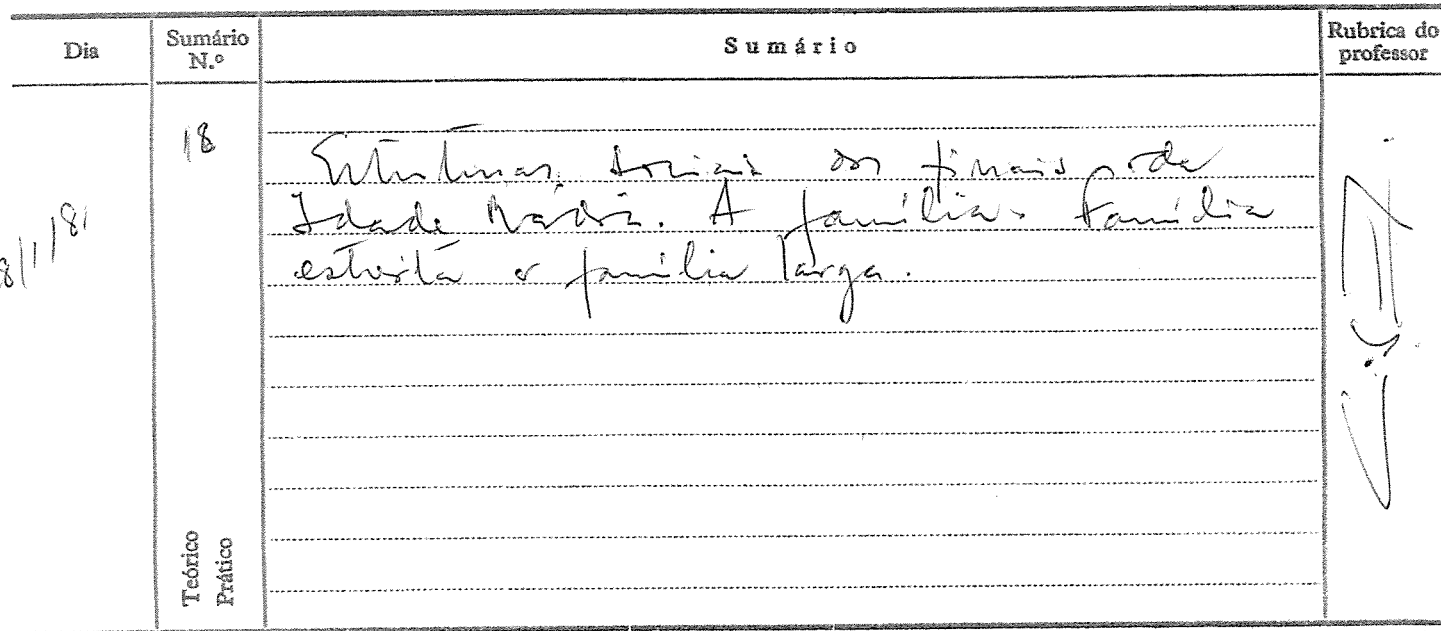 Dia
Sumário N.º
Sumário
Rubrica do professor
8/1/81
18
Estruturas sociais dos finais da
Idade Média. A família. Família
estreita e família larga.
Teórico
Prático